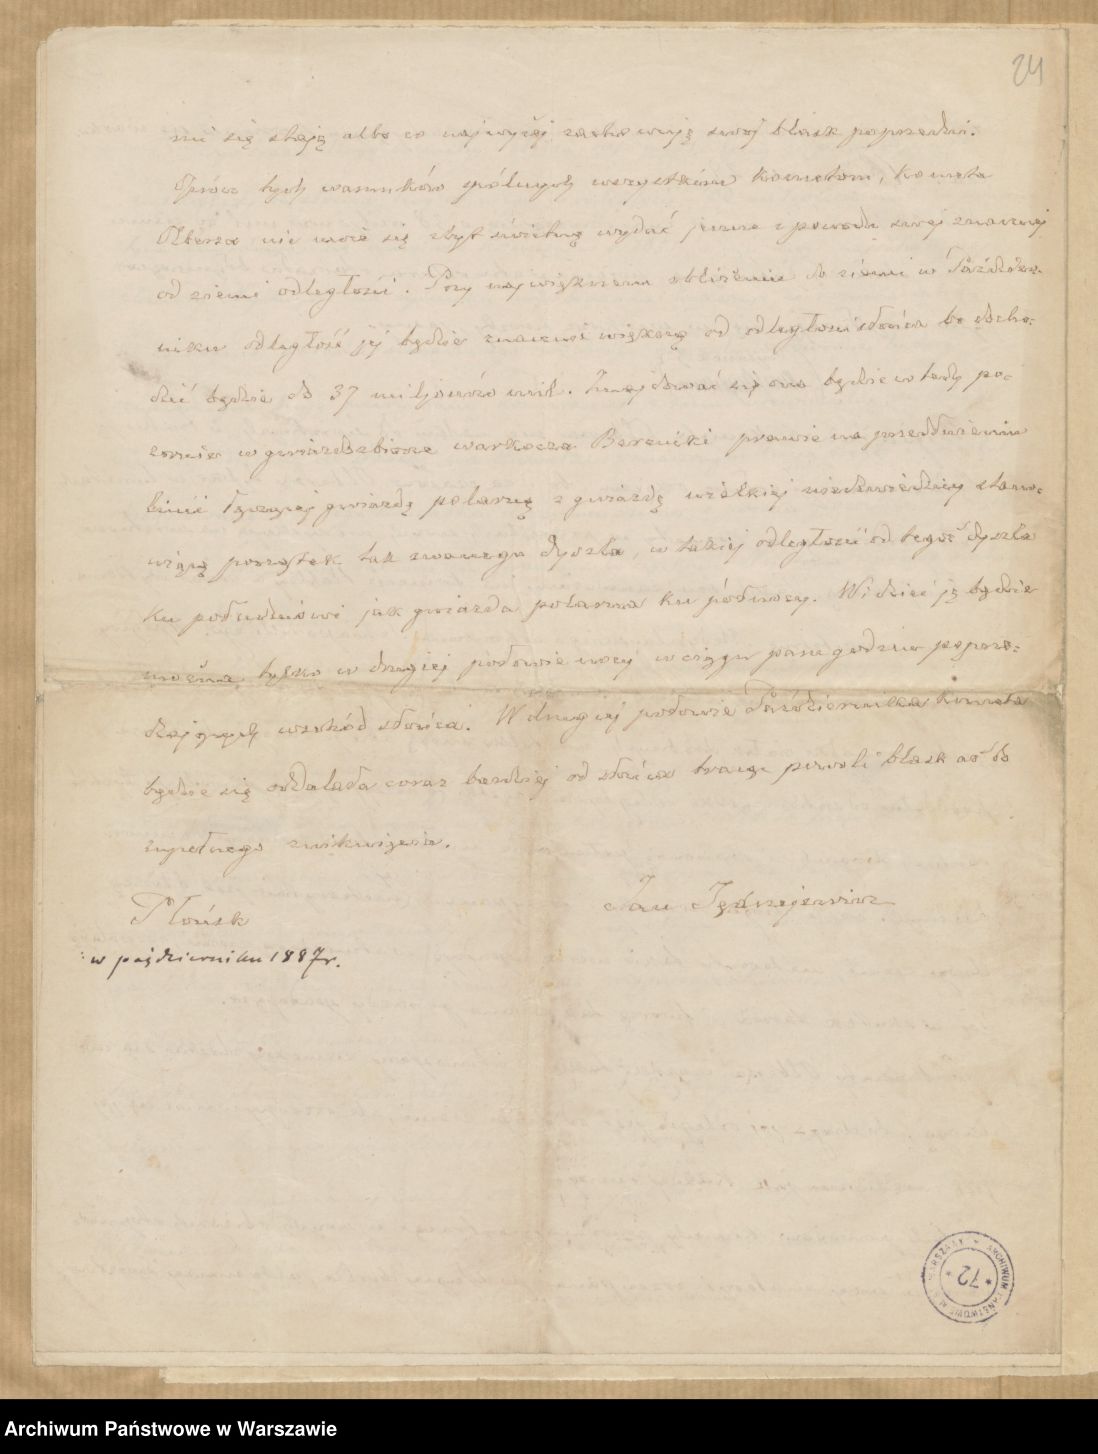 24
mi się stają albo co najwyżej zachowują swój blask poprzedni.
Oprócz tych warunków spólnych wszystkim kometom, kometa
Olbersa nie może się zbyt świetną wydać jeszcze z powodu swej znacznej
od ziemi odległości. Przy największem zbliżeniu do ziemi w Paździer-
niku odległość jej będzie znacznie większą od odległości słońca bo docho-
dzić będzie do 37 miljonów mil. Znajdować się ona będzie wtedy po-
zornie w gwiazdozbiorze warkocza Bereniki prawie na przedłużeniu
linii łączącej gwiazdę polarną z gwiazdą wielkiej niedźwiedzicy stano-
wiącą początek tak zwanego dyszla, w takiej odległości od tegoż dyszla
ku południowi jak gwiazda polarna ku północy. Widzieć ją będzie
można tylko w drugiej połowie nocy w ciągu paru godzin poprze-
dzających wschód słońca. W drugiej połowie Października kometa
będzie się oddalała coraz bardziej od słońca tracąc powoli blask aż do
zupełnego zniknięcia.
Jan Jędrzejewicz
Płońsk
w październiku 1887 r.
ARCHIWUM PAŃSTWOWE M. WARSZAWY
72
Archiwum Państwowe w Warszawie